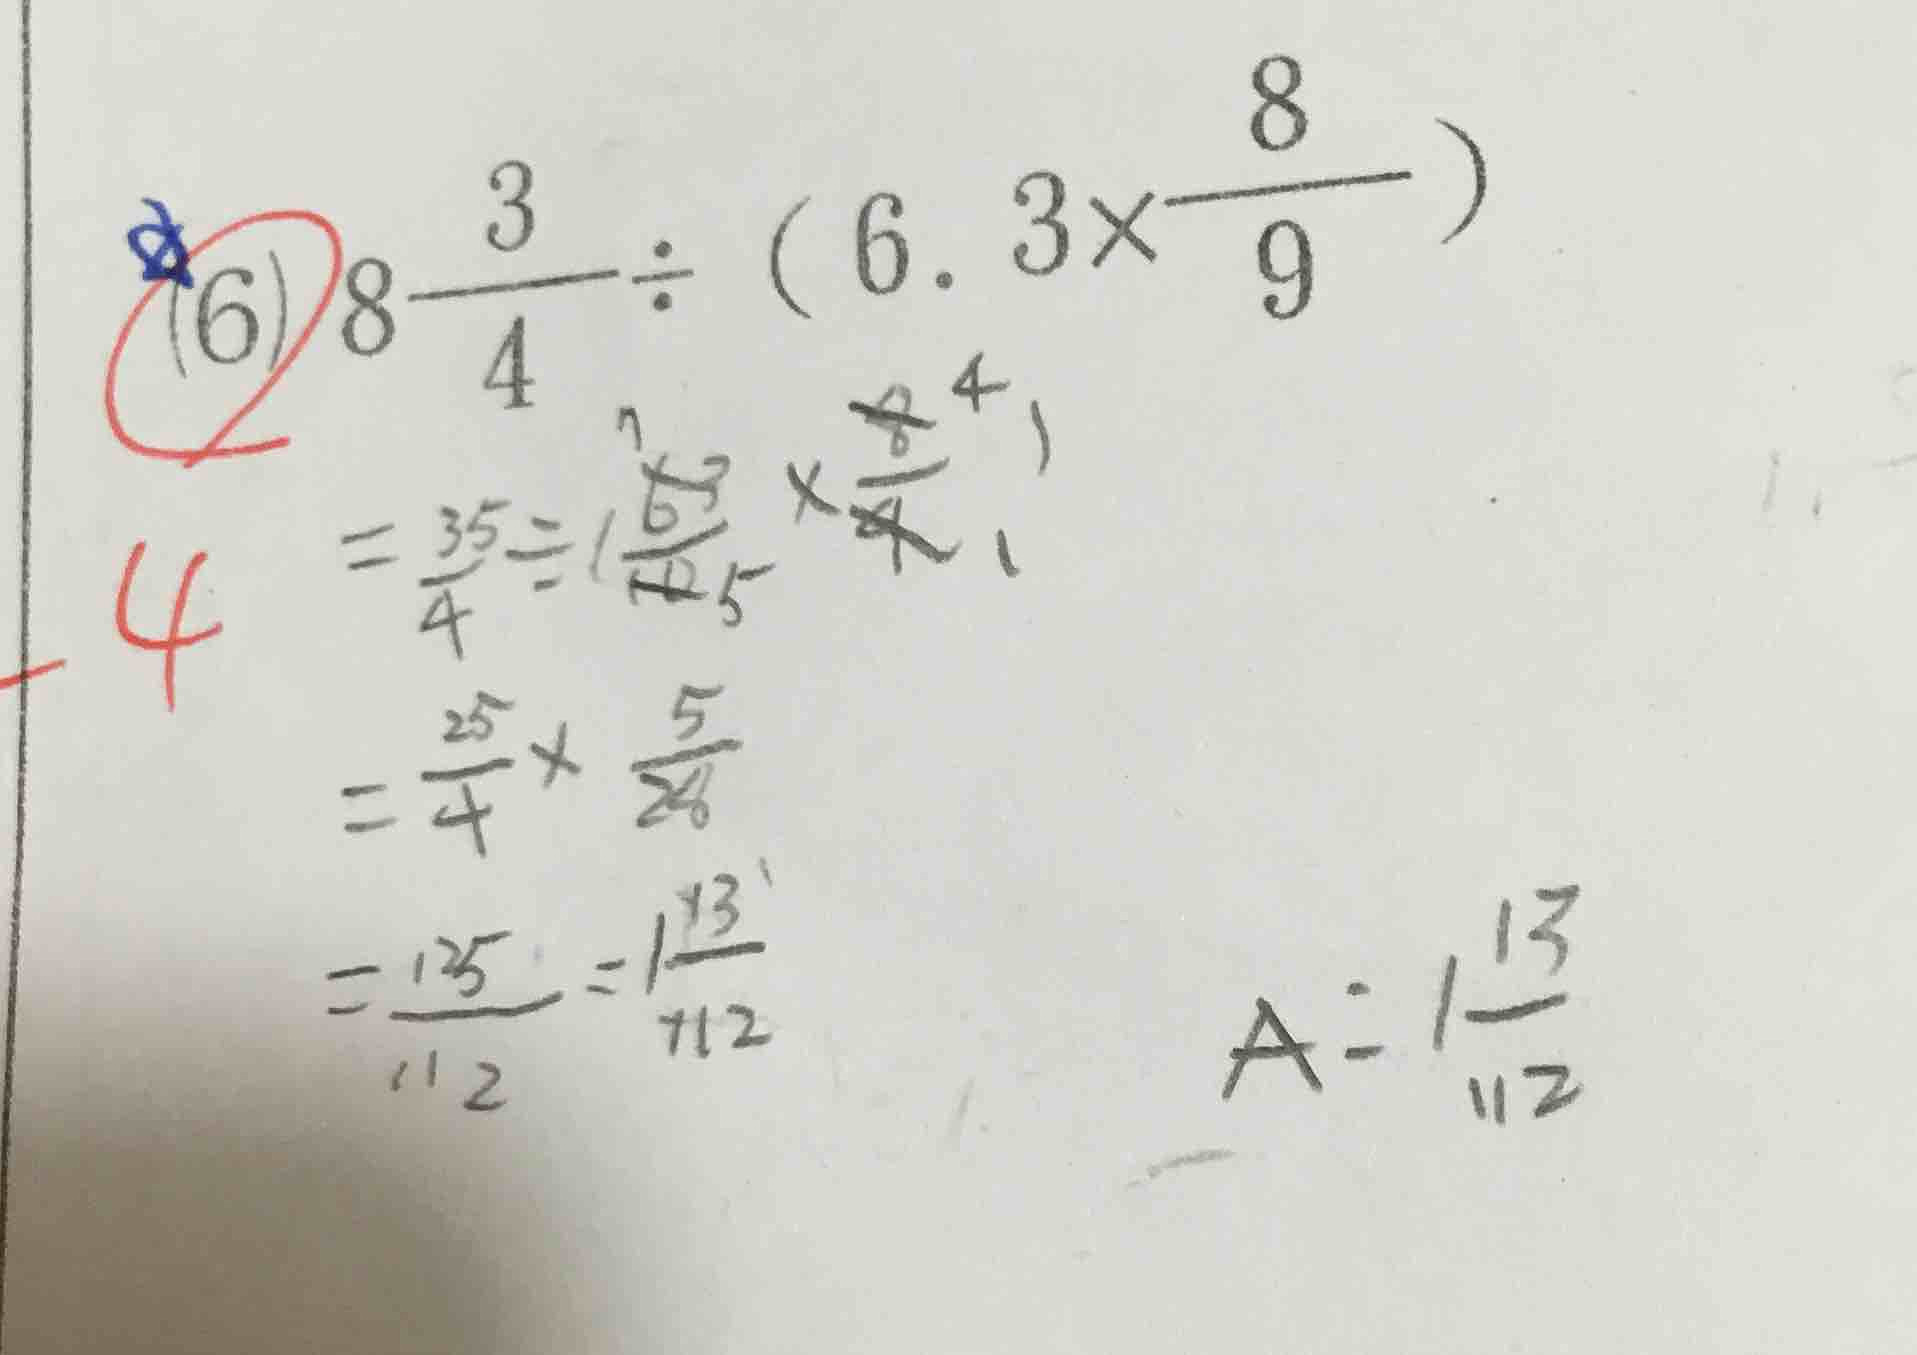 (6) 8 3/4 ÷ (6.3 × 8/9)
= 35/4 ÷ (63/10 × 8/9)
7 5 4 1
- 4
= 25/4 × 5/28
= 125/112 = 1 13/112
A = 1 13/112